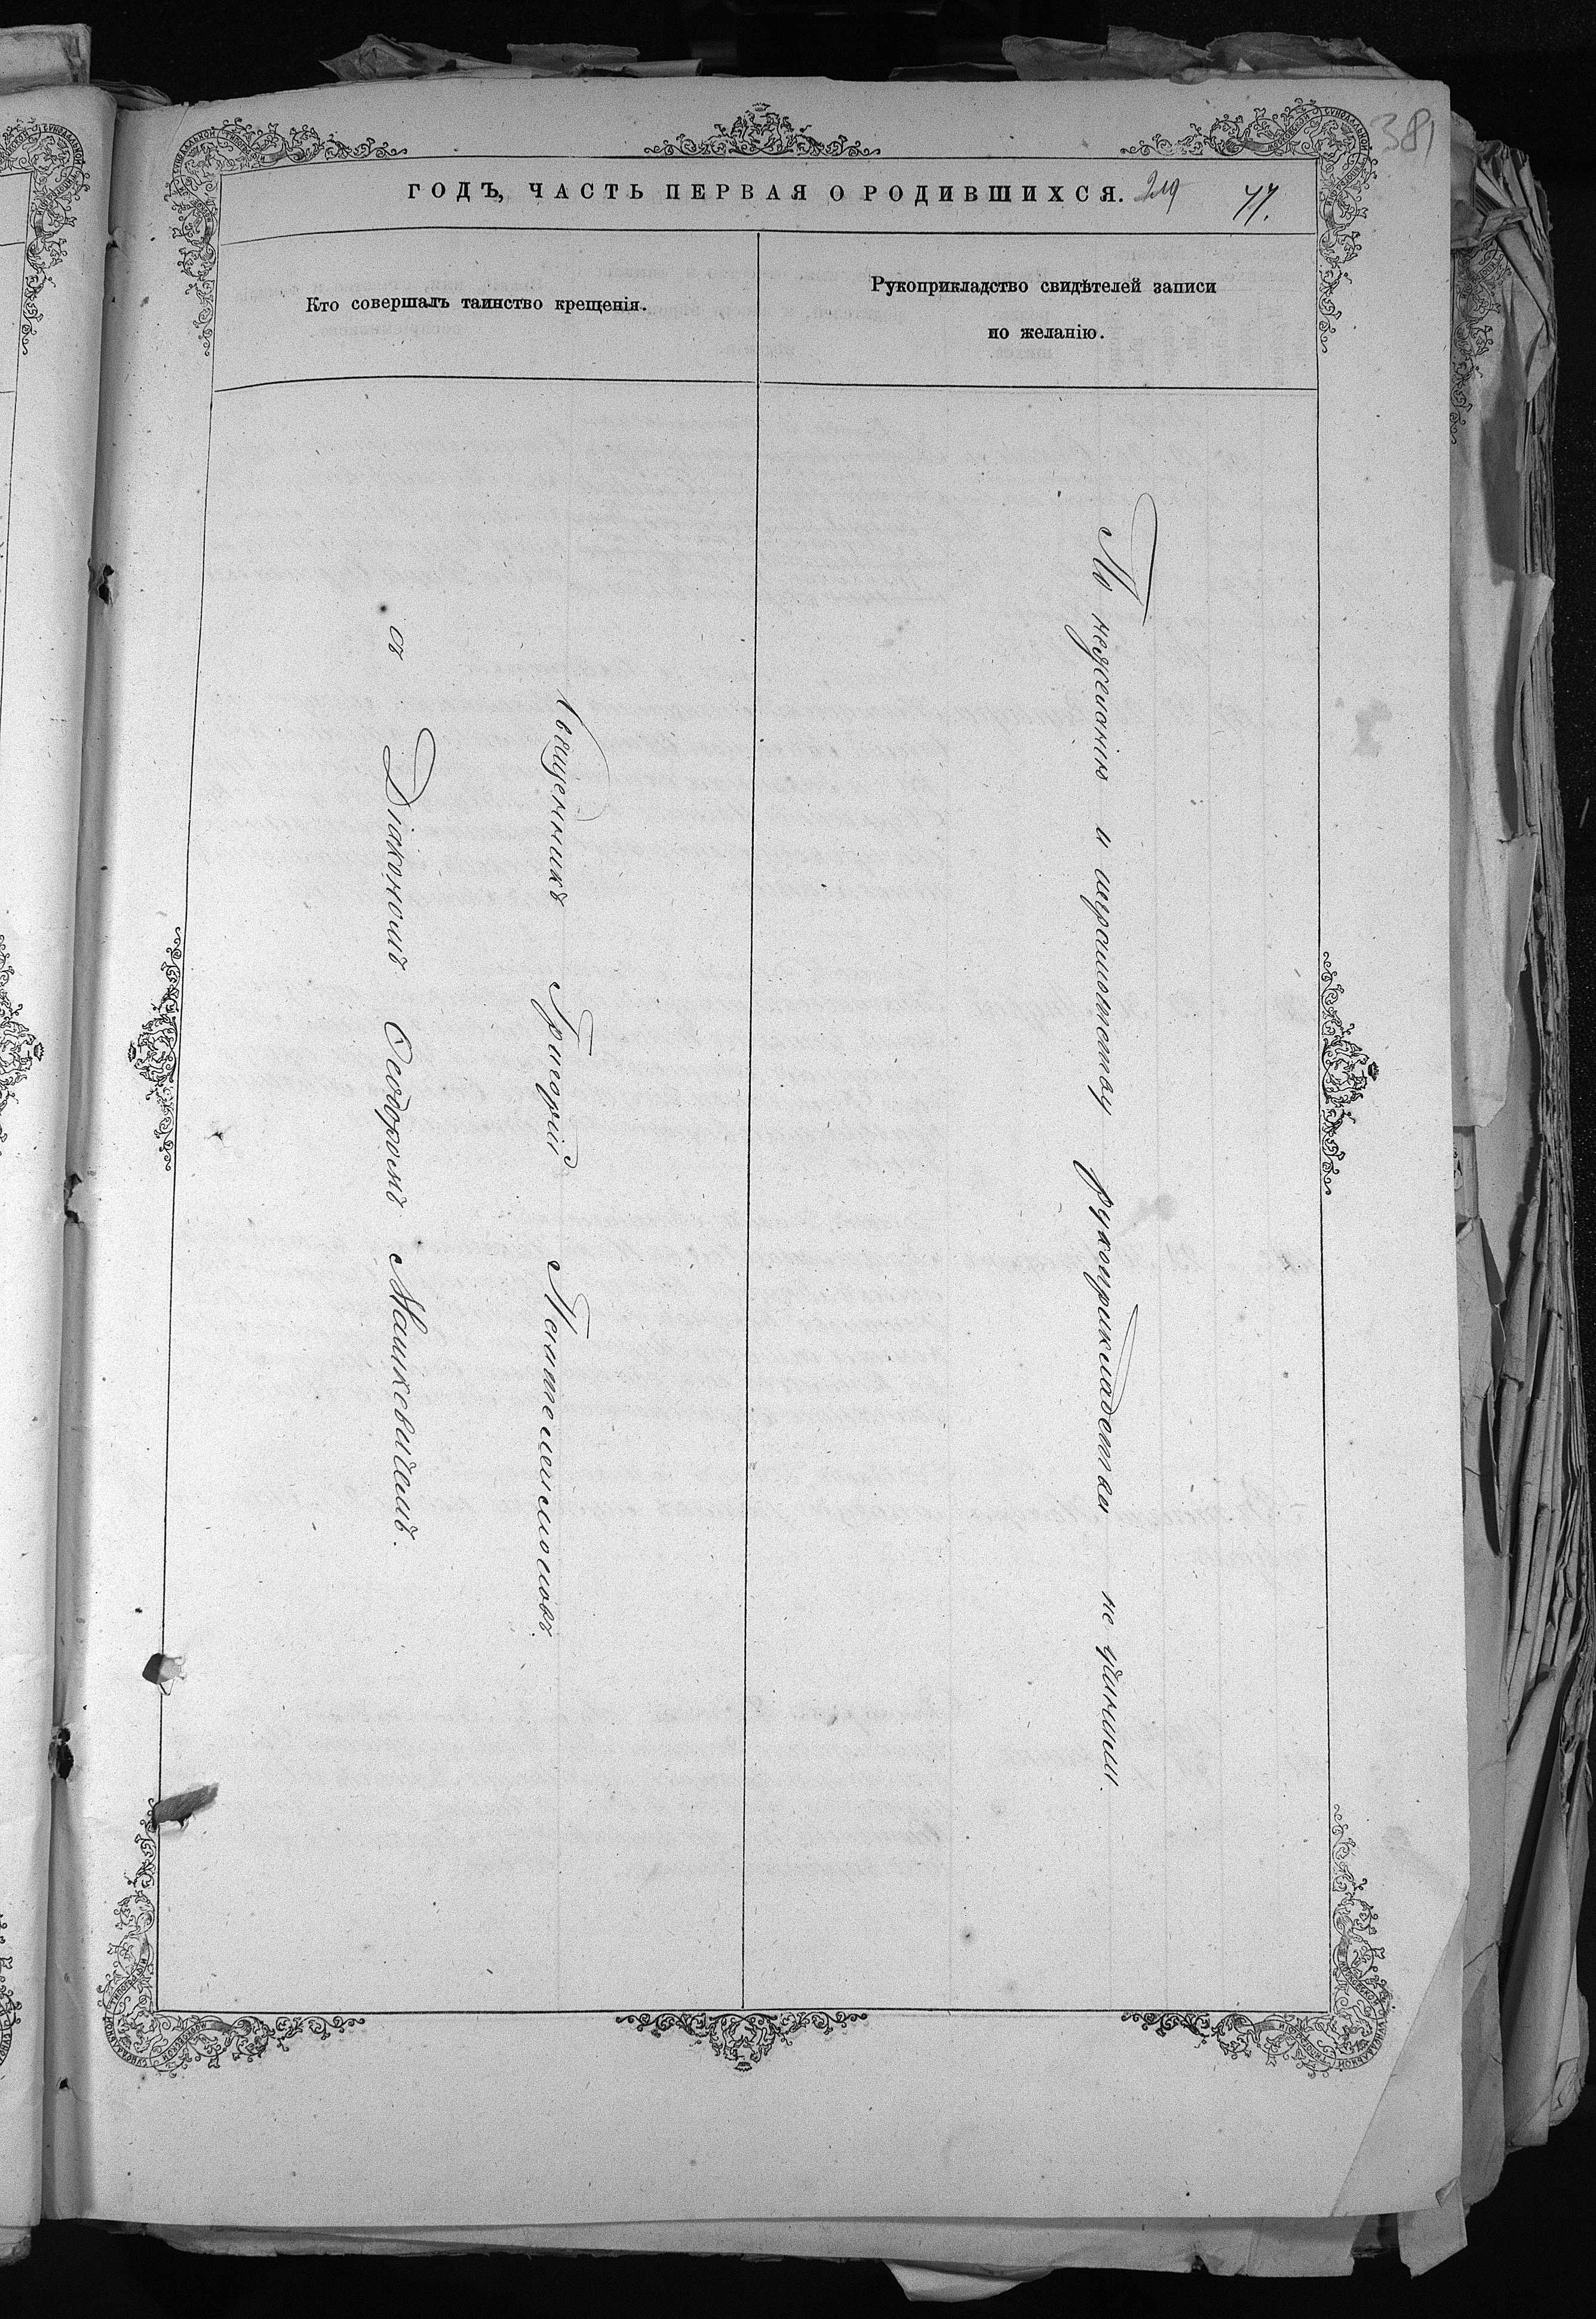 381
ГОДЪ, ЧАСТЬ ПЕРВАЯ О РОДИВШИХСЯ. 219 77.
Кто совершалъ таинство крещенія.
Рукоприкладство свидѣтелей записи
по желанію.
Священникъ Григорій
съ Діакономъ Ѳеодоромъ Машкевичемъ.
По нежеланію и неграмотству рукоприкладства не учинили.